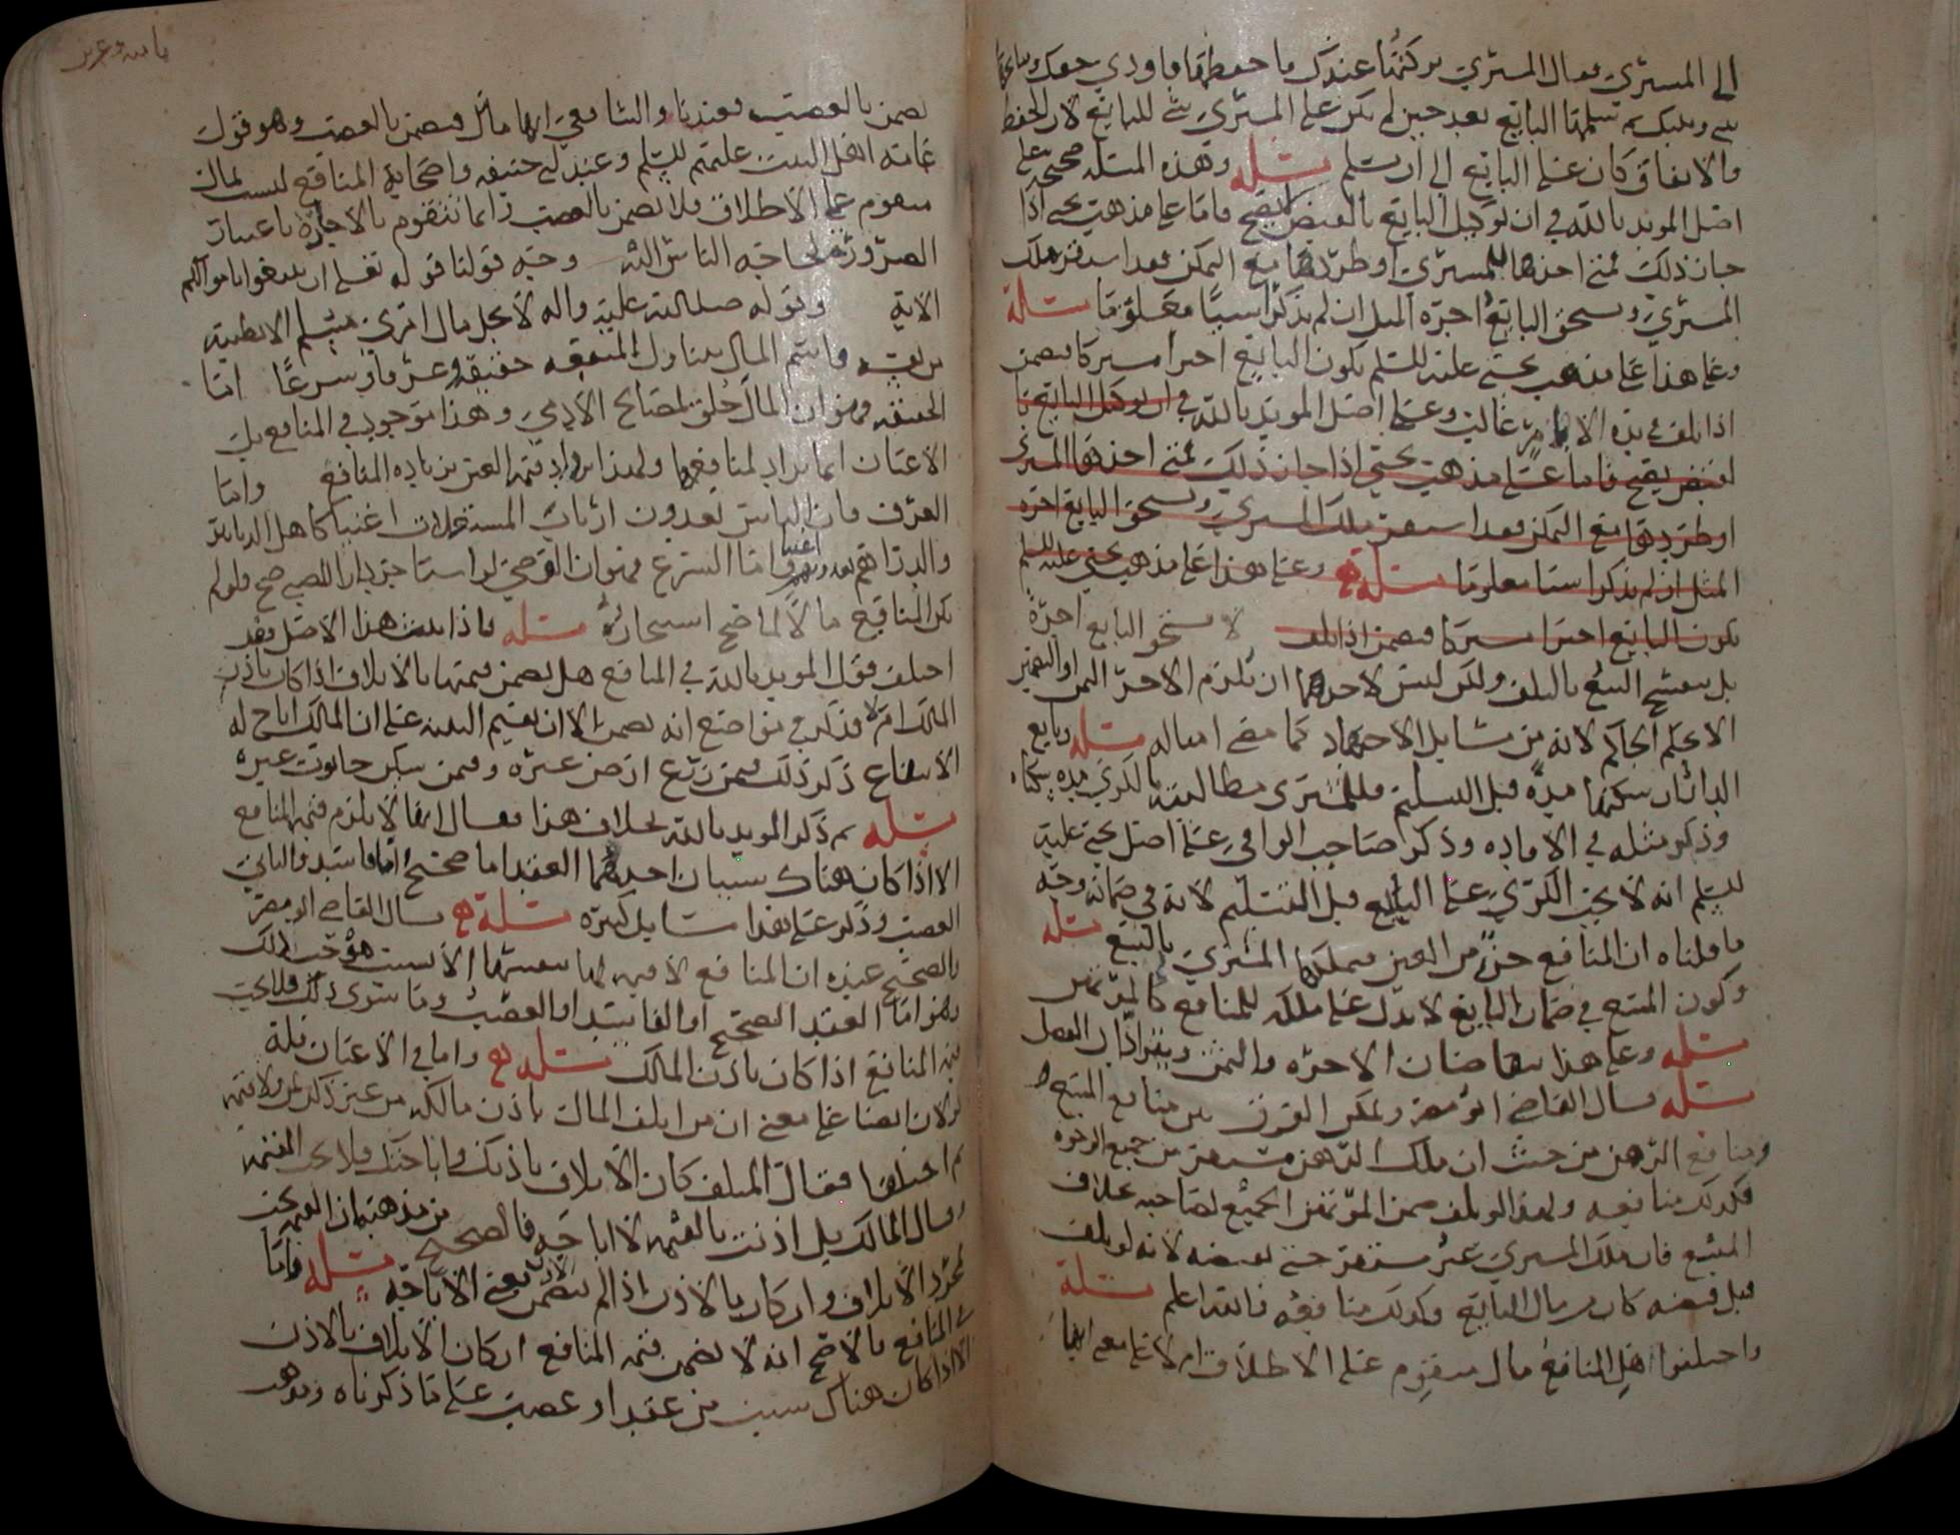 الى المشتري فقال المشتري تركتها عندك ما حفظتها فاودي حقك
تسلمها البائع بعد حين لم يكن على المشتري شي للبائع لان الحفظ
والانفاق كان على البائع الى ان يسلم مسئلة وهذه المسئلة صحيحة على
اصل المويد بالله في ان توكيل البائع بالقبض لا يصح فاما على مذهب يحيى اذا
جاز ذلك فمتى احدها للمشتري او طردها مع التمكن فقد استقر ملك
المشتري ويستحق البائع اجرة المثل ان لم يذكرا شيئا معلوما مسئلة
وعلى هذا على مذهب يحيى عليه السلم يكون البائع اجيرا مشتركا فيضمن
اذا تلفت في يده الا بامر غالب وعلى اصل المويد بالله في ان توكيل البائع با
لقبض يصح فاما على مذهب يحيى اذا جاز ذلك فمتى احدها المشتري
او طردها مع التمكن فقد استقر ملك المشتري ويستحق البائع اجرة
المثل ان لم يذكرا شيئا معلوما مسئلة وعلى هذا على مذهب يحيى عليه السلم
يكون البائع اجيرا مشتركا فيضمن اذا تلف لا يستحق البائع اجرة
بل ينفسخ البيع بالتلف ولكن ليس لاحدهما ان يلزم الاخر الثمن او القيمة
الا بحكم الحاكم لانه من مسايل الاجتهاد كما مضى امثاله مسئلة وبايع
الدار ان سكنها مدة قبل التسليم فللمشتري مطالبته بالكرى مدة سكناه
وذكر مثله في الافادة وذكر صاحب الوافي على اصل يحيى عليه
السلم انه لا يجب الكرى على البايع قبل التسليم لانه في ضمانه وجه
ما قلناه ان المنافع جزء من العين فيملكها المشتري بالبيع مسئلة
وكون المبيع في ضمان البايع لا يدل على ملكه للمنافع كالمرتهن
مسئلة وعلى هذا يتقاضان الاجرة والثمن ويترادان الفضل
مسئلة قال القاضي ابو مضر ويمكن الفرق بين منافع المبيع
ومنافع الرهن من حيث ان ملك الراهن مستقر من جميع الوجوه
فكذلك منافعه ولهذا لو تلف ضمن المرتهن الجميع لصاحبه بخلاف
المبيع فان ملك المشتري غير مستقر حتى يقبضه لانه لو تلف
قبل قبضه كان من مال البايع وكذلك منافعه فالله اعلم مسئلة
واختلفوا هل المنافع مال متقوم على الاطلاق ام لا على معنى انها
تضمن بالغصب فعندنا والشافعي انها مال فتضمن بالغصب وهو قول
عامة اهل البيت عليهم السلم وعند ابي حنيفه واصحابه المنافع ليست بمال
متقوم على الاطلاق فلا تضمن بالغصب وانما تتقوم بالاجارة باعتبار
الضرورة لحاجة الناس اليه وجه قولنا قوله تعالى ان تبتغوا باموالكم
الاية وقوله صلى الله عليه واله لا يحل مال امرئ مسلم الا بطيبة
من نفسه واسم المال يتناول المنفعه حقيقة وعرفا وشرعا اما
الحقيقة فهو ان المال خلق لمصالح الادمي وهذا موجود في المنافع بل
الاعيان انما تراد لمنافعها ولهذا تزداد قيمة العين بزيادة المنافع واما
العرف فان الناس يعدون ارباب المستغلات اغنيا كاهل الدنانير
والدراهم واما الشرع فهو ان القرضي لو استاجر دارا للصبي صح فلو لم
تكن المنافع مالا لما صح استيجاره مسئلة فاذا ثبت هذا الاصل فقد
اختلف قول المويد بالله في المنافع هل يضمن قيمتها بالاتلاف اذا كان باذن
المالك ام لا فذكر في مواضع انه يضمن الا ان يقيم البينه على ان المالك اباح له
الانتفاع ذكر ذلك فيمن زرع ارض غيره وفيمن سكن حانوت غيره
مسئلة ثم ذكر المويد بالله بخلاف هذا فقال انها لا يلزم قيمة المنافع
الا اذا كان هناك سببان احدهما العقد اما صحيح اما فاسد والثاني
الغصب وذكر على هذا مسايل كثيرة مسئلة قال القاضي ابو مضر
فالصحيح عنده ان المنافع لا قيمة لها بنفسها الا بسبب هو حق المالك
وهو اما العقد الصحيح او الفاسد او الغصب وما سوى ذلك فلا يجب
قيمة المنافع اذا كان باذن المالك مسئلة واما في الاعيان فله
قولان ايضا على معنى ان من اتلف المال باذن مالكه من غير ذكر
ثم اختلفا فقال المتلف كان الاتلاف باذنك واباحتك فلا يجب القيمة
وقال المالك بل اذنت بالقيمة لا اباحة فالصحيح من مذهبه ان القيمة تجب
بمجرد الاتلاف وان كان بالاذن اذا لم يتضمن الاذن معنى الاباحة مسئلة واما
في المنافع فالاصح انه لا يضمن قيمة المنافع ان كان الاتلاف بالاذن
الا اذا كان هناك سبب من عقد او غصب على ما ذكرناه